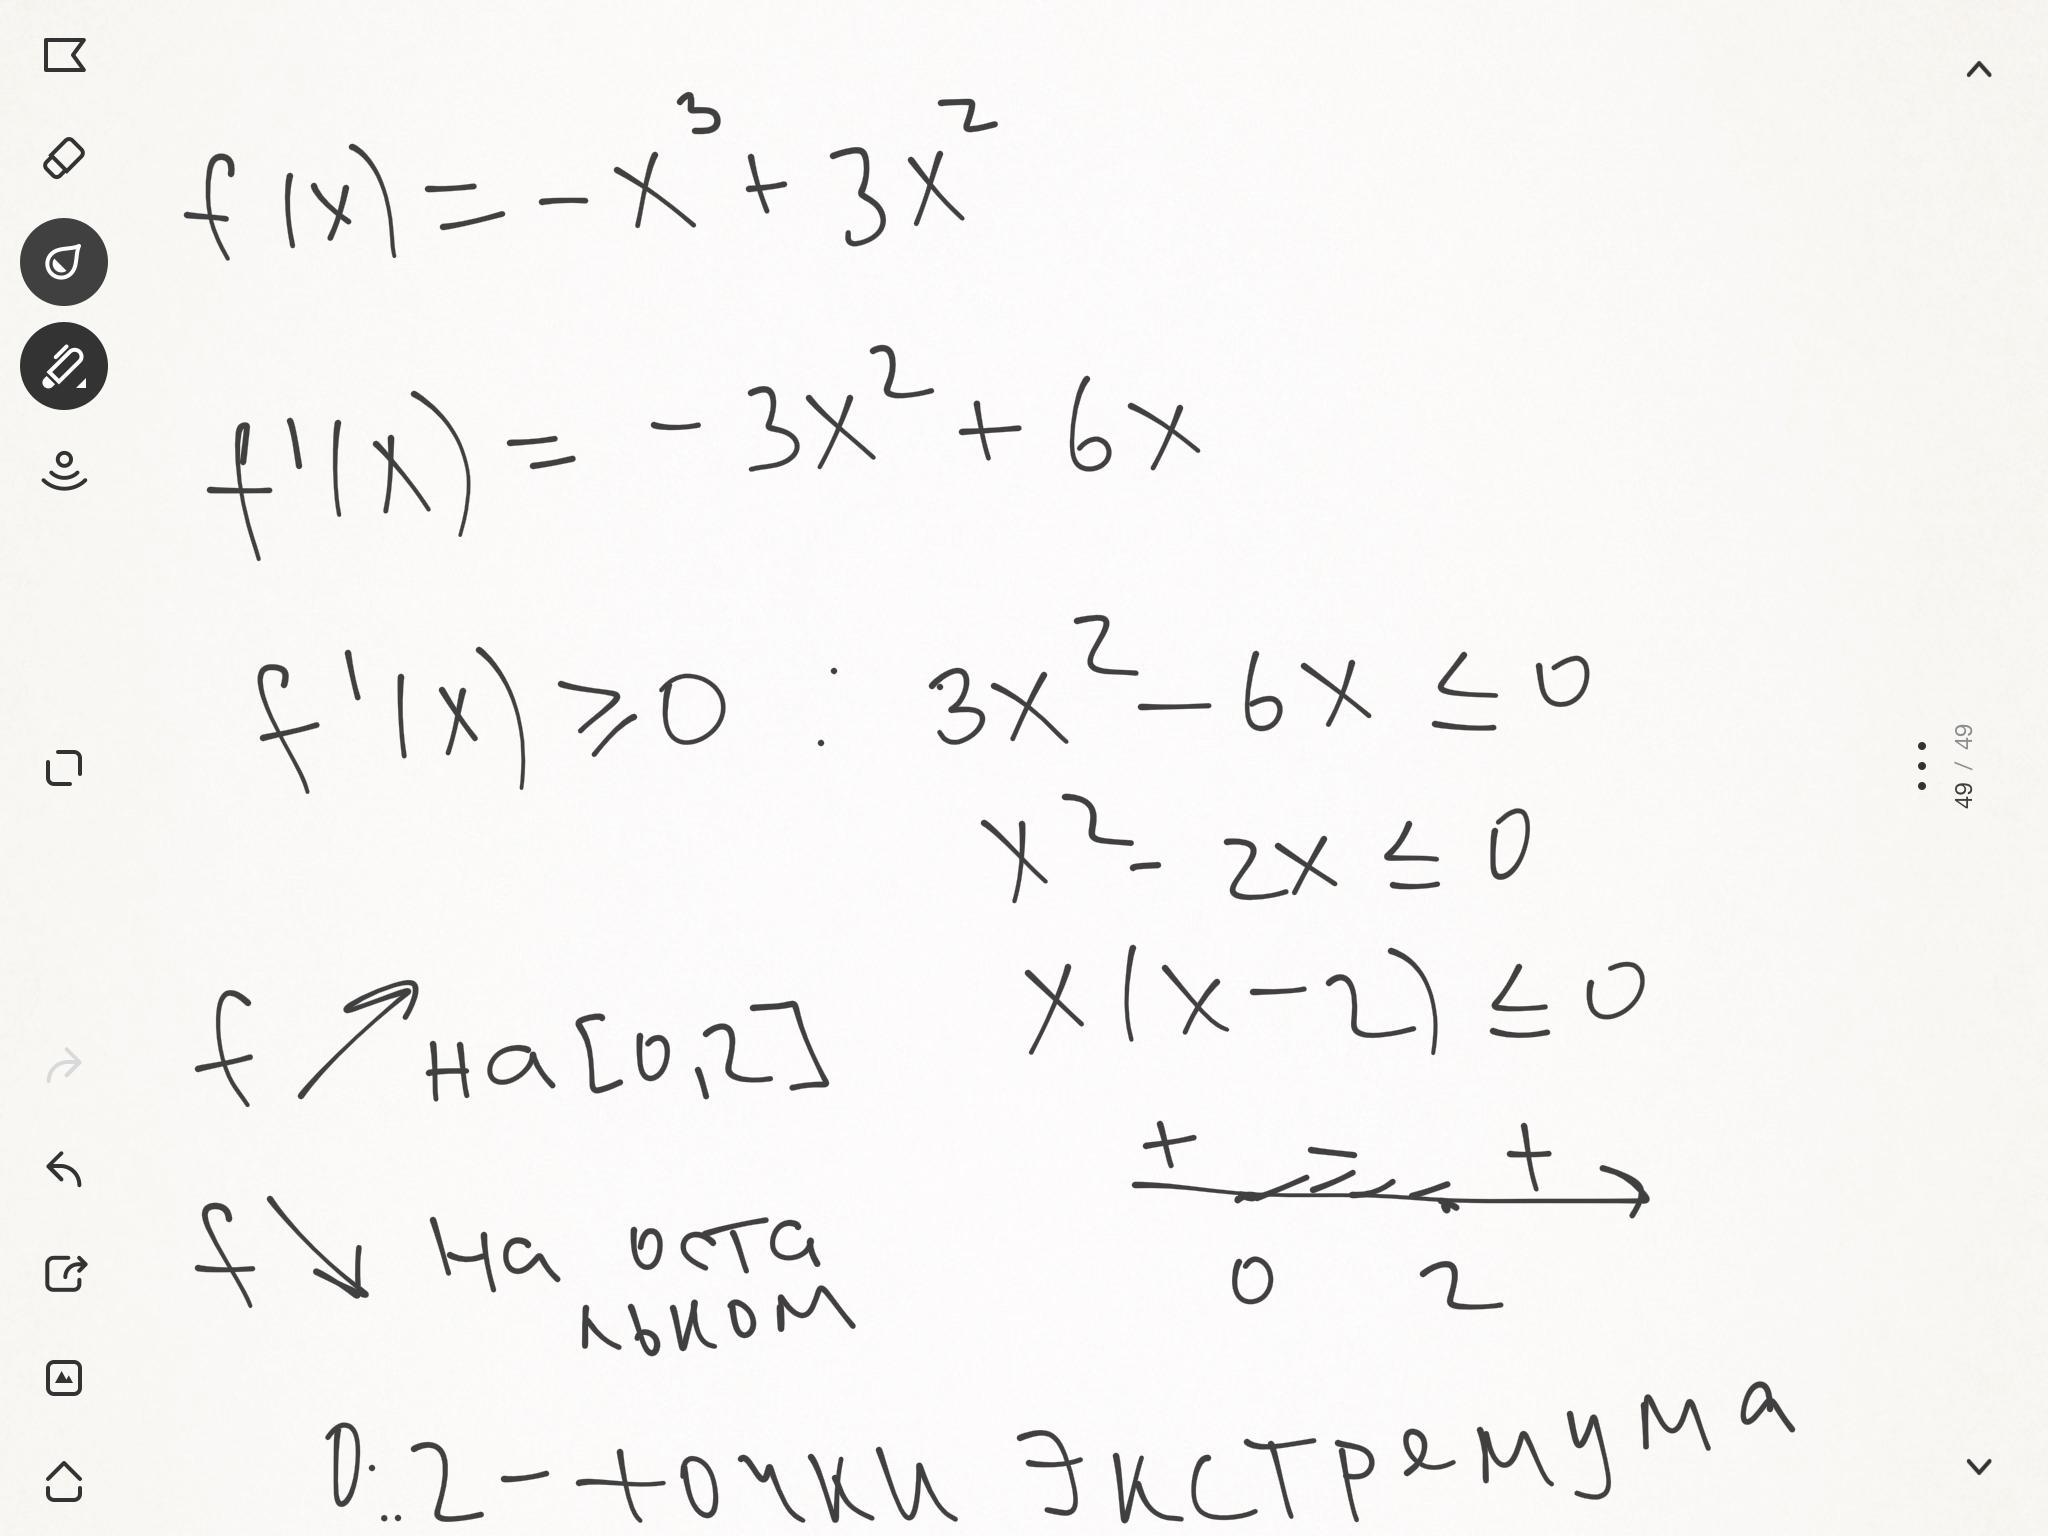 f(x) = -x³ + 3x²
f'(x) = -3x² + 6x
f'(x) ⩾ 0 : 3x² - 6x ≤ 0
x² - 2x ≤ 0
x(x-2) ≤ 0
f ↗ на [0,2]
+ - +
0 2
f ↘ на оста
льном
0; 2 - точки экстремума
49 / 49